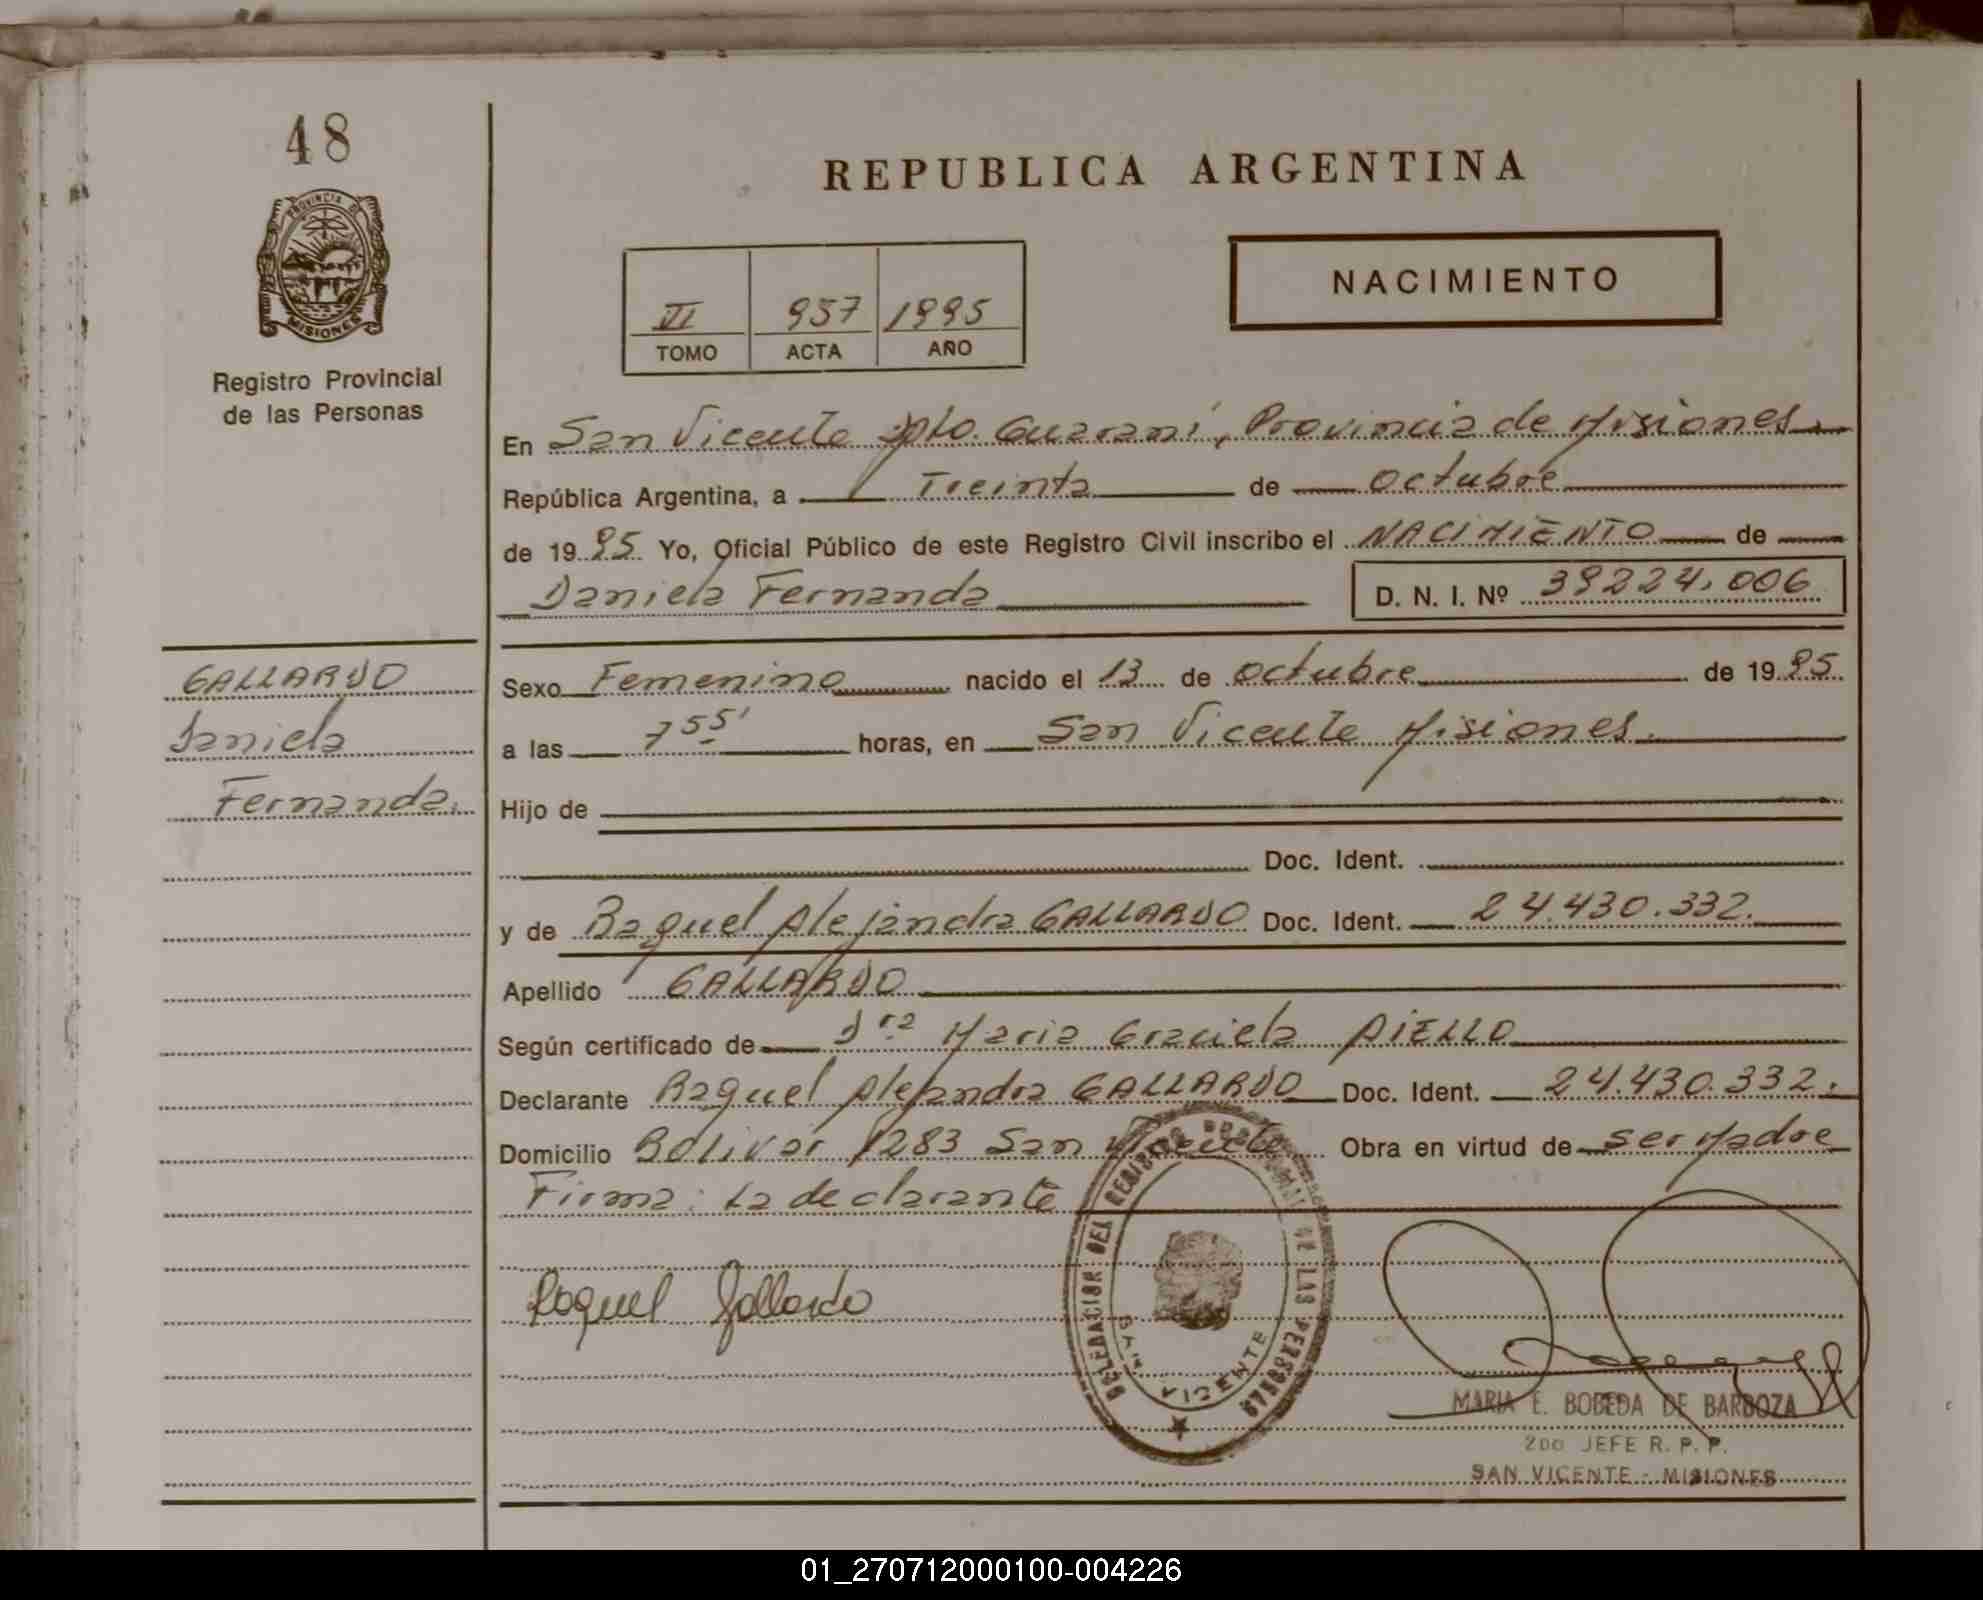 48
PROVINCIA DE
MISIONES
Registro Provincial
de las Personas
REPUBLICA ARGENTINA
NACIMIENTO
VI 957 1995
TOMO ACTA AÑO
En San Vicente Dpto. Guaraní, Provincia de Misiones.
República Argentina, a Treinta de octubre
de 1995 Yo, Oficial Público de este Registro Civil inscribo el NACIMIENTO de
Daniela Fernanda D. N. I. Nº 39224.006
GALLARDO
Daniela
Fernanda.
Sexo Femenino nacido el 13 de octubre de 1995.
a las 7 55' horas, en San Vicente Misiones.
Hijo de
Doc. Ident.
y de Raquel Alejandra GALLARDO Doc. Ident. 24.430.332.
Apellido GALLARDO
Según certificado de Dra Maria Graciela AIELLO
Declarante Raquel Alejandra GALLARDO Doc. Ident. 24.430.332.
Domicilio Bolivar 1283 San Vicente Obra en virtud de ser Madre
Firma: La declarante
Raquel Gallardo
DELEGACION DEL REGISTRO PROVINCIAL DE LAS PERSONAS
SAN VICENTE
MARIA E. BOBEDA DE BARBOZA
2DO JEFE R. P. P.
SAN VICENTE - MISIONES
01_270712000100-004226